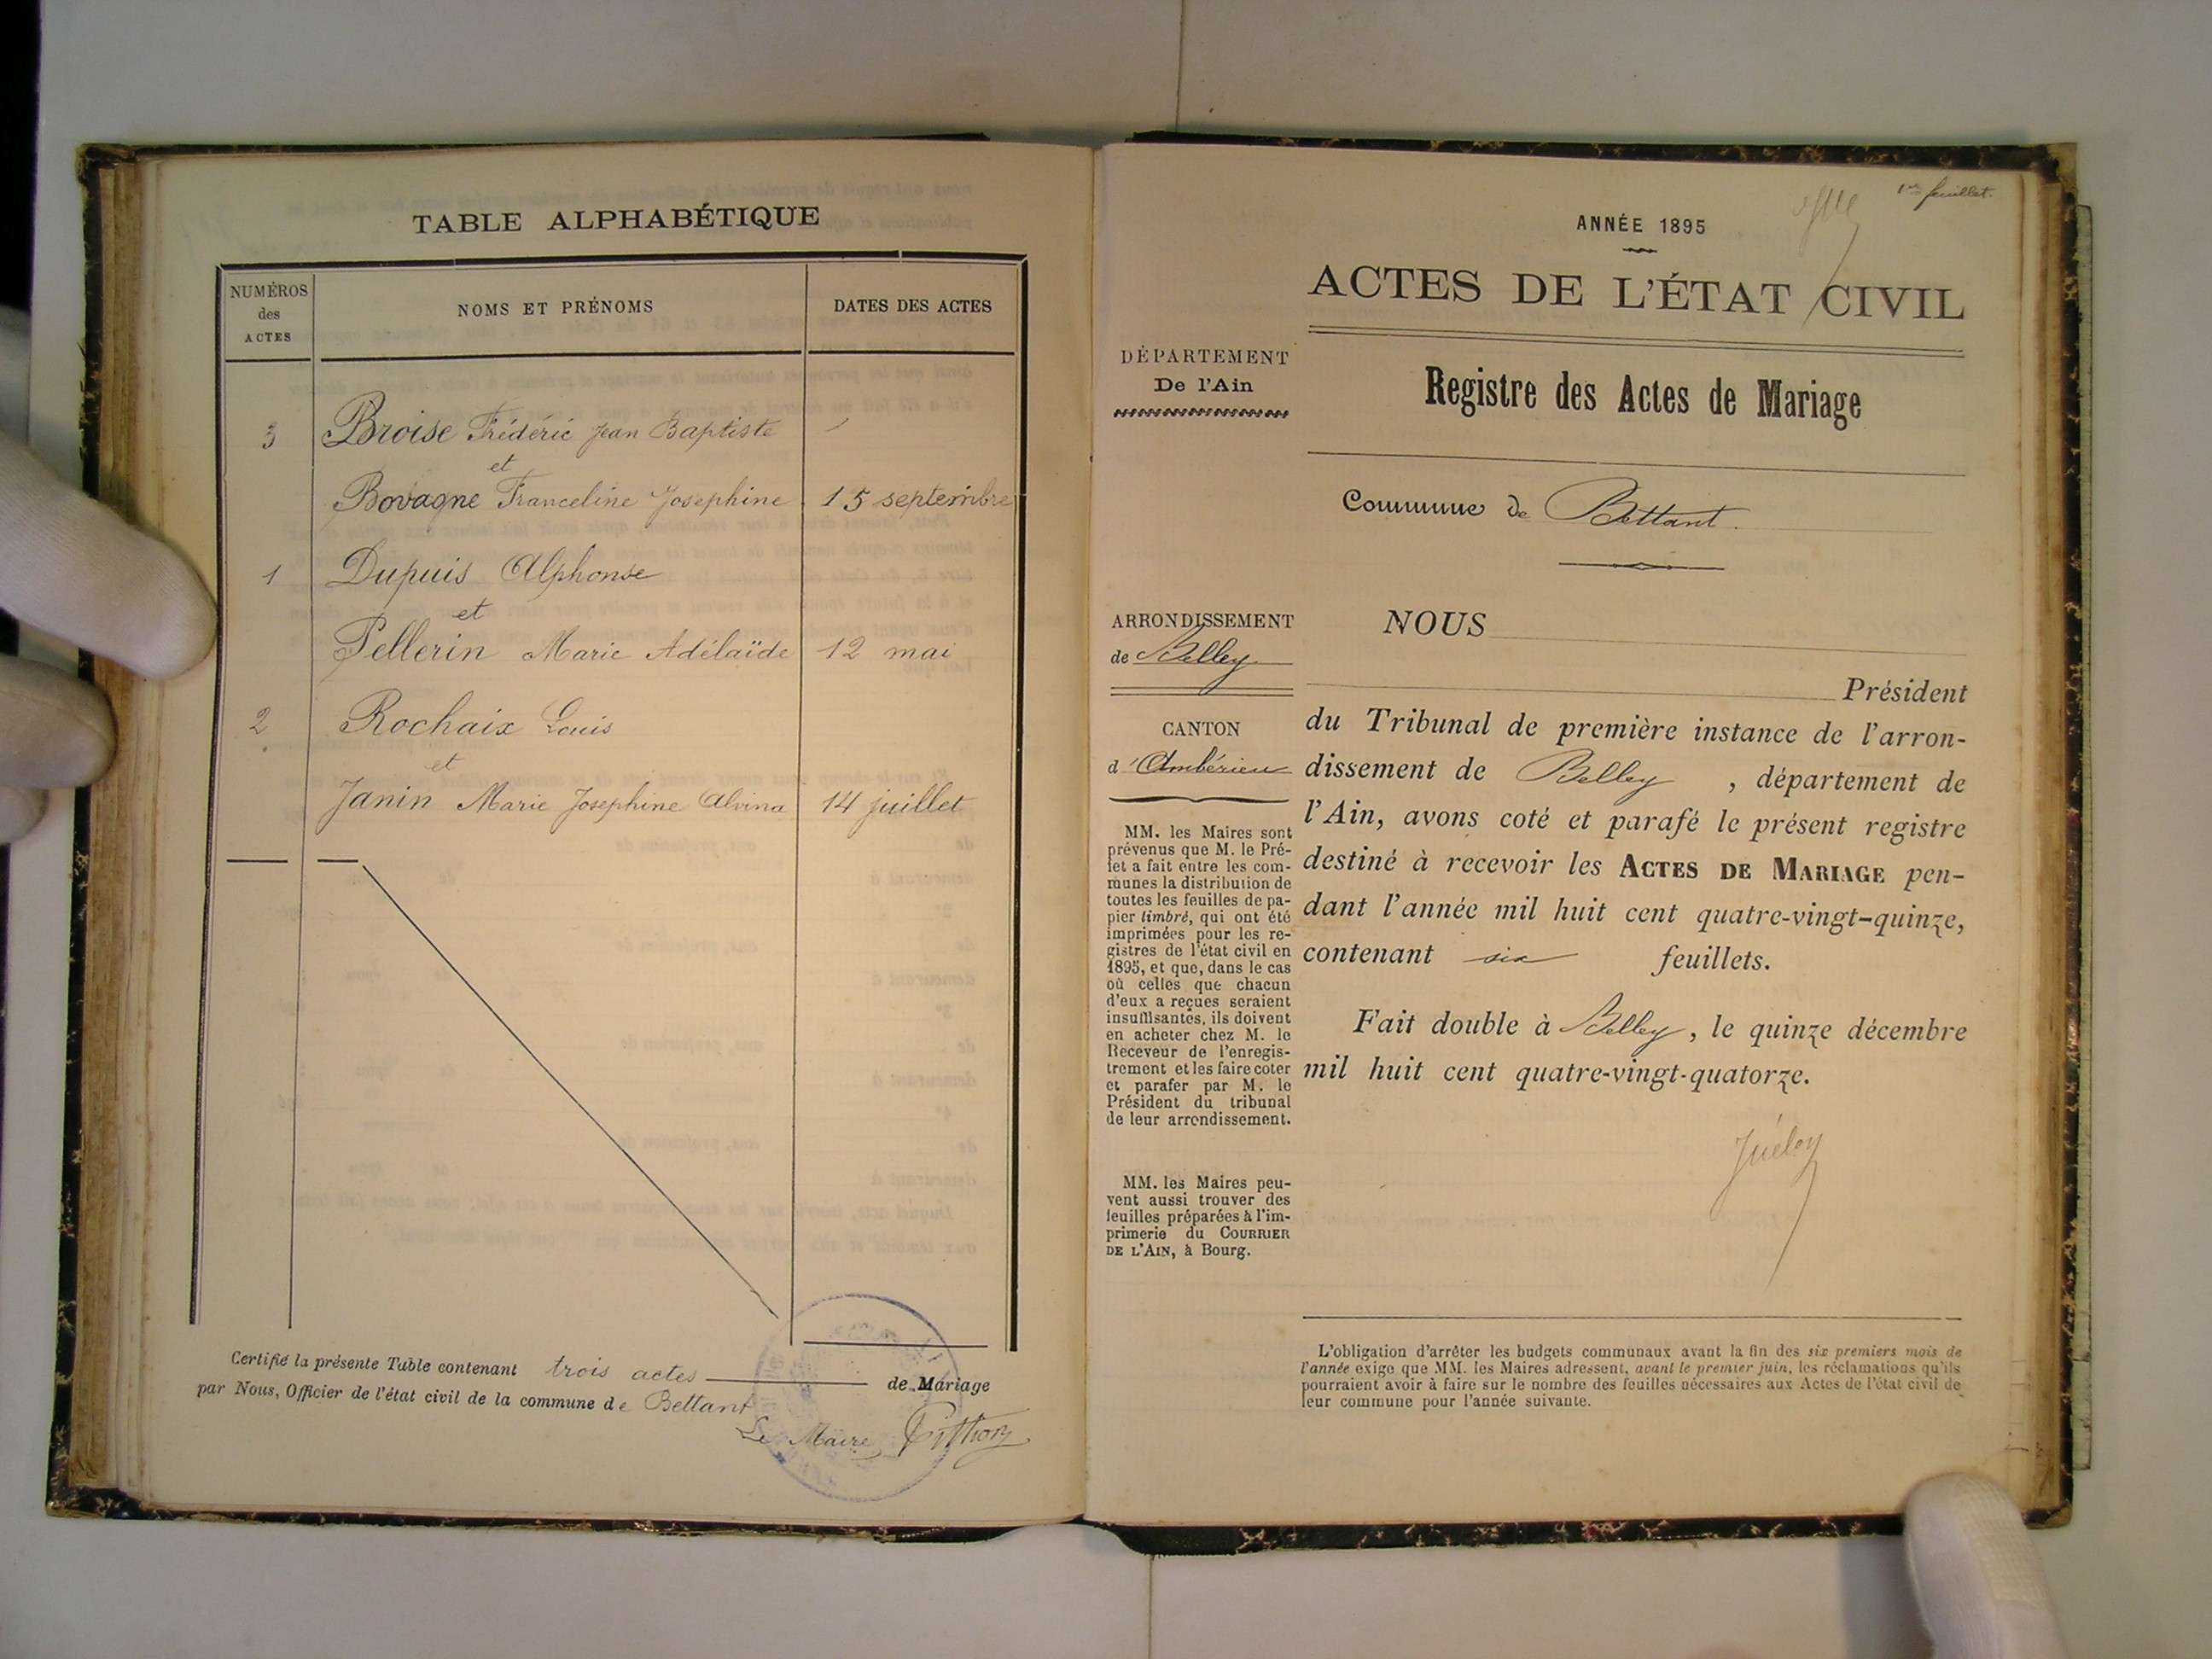 TABLE ALPHABÉTIQUE
NUMÉROS
des
ACTES
NOMS ET PRÉNOMS
DATES DES ACTES
3 Broise Frédéric Jean Baptiste
et
Bovagne Franceline Josephine 15 septembre
1 Dupuis Alphonse
et
Pellerin Marie Adélaïde 12 mai
2 Rochaix Louis
et
Janin Marie Josephine Alvina 14 juillet
Certifié la présente Table contenant trois actes de Mariage
par Nous, Officier de l'état civil de la commune de Bettant
Le Maire
1er feuillet.
ANNÉE 1895
ACTES DE L'ÉTAT CIVIL
DÉPARTEMENT
De l'Ain
Registre des Actes de Mariage
Commune de Bettant.
ARRONDISSEMENT
de Belley
CANTON
d'Ambérieu
MM. les Maires sont
prévenus que M. le Pré-
fet a fait entre les com-
munes la distribution de
toutes les feuilles de pa-
pier timbré, qui ont été
imprimées pour les re-
gistres de l'état civil en
1895, et que, dans le cas
où celles que chacun
d'eux a reçues seraient
insuffisantes, ils doivent
en acheter chez M. le
Receveur de l'enregis-
trement et les faire coter
et parafer par M. le
Président du tribunal
de leur arrondissement.
MM. les Maires peu-
vent aussi trouver des
feuilles préparées à l'im-
primerie du COURRIER
DE L'AIN, à Bourg.
NOUS
Président
du Tribunal de première instance de l'arron-
dissement de Belley, département de
l'Ain, avons coté et parafé le présent registre
destiné à recevoir les ACTES DE MARIAGE pen-
dant l'année mil huit cent quatre-vingt-quinze,
contenant six feuillets.
Fait double à Belley, le quinze décembre
mil huit cent quatre-vingt-quatorze.
L'obligation d'arrêter les budgets communaux avant la fin des six premiers mois de
l'année exige que MM. les Maires adressent, avant le premier juin, les réclamations qu'ils
pourraient avoir à faire sur le nombre des feuilles nécessaires aux Actes de l'état civil de
leur commune pour l'année suivante.